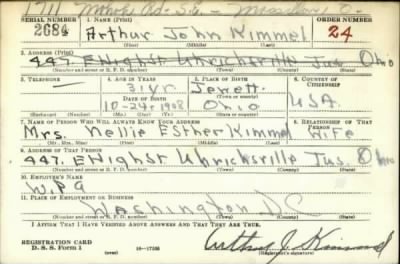 1711 Manor Rd - S.E. - Massillon O.
SERIAL NUMBER 1. NAME (Print) ORDER NUMBER
2684 Arthur John Kimmel 24
(First) (Middle) (Last)
2. ADDRESS (Print)
447. E High St Uhrichsville Tus. Ohio
(Number and street or R. F. D. number) (Town) (County) (State)
3. TELEPHONE 4. AGE IN YEARS 5. PLACE OF BIRTH 6. COUNTRY OF CITIZENSHIP
31 yr. Jewett
DATE OF BIRTH (Town or county)
10-24-1908 Ohio USA.
(Exchange) (Number) (Mo.) (Day) (Yr.) (State or country)
7. NAME OF PERSON WHO WILL ALWAYS KNOW YOUR ADDRESS 8. RELATIONSHIP OF THAT PERSON
Mrs. Nellie Esther Kimmel Wife
(Mr., Mrs., Miss) (First) (Middle) (Last)
9. ADDRESS OF THAT PERSON
447. E High St Uhrichsville Tus. Ohio
(Number and street or R. F. D. number) (Town) (County) (State)
10. EMPLOYER'S NAME
W.P.A
11. PLACE OF EMPLOYMENT OR BUSINESS
Washington D C
(Number and street or R. F. D. number) (Town) (County) (State)
I AFFIRM THAT I HAVE VERIFIED ABOVE ANSWERS AND THAT THEY ARE TRUE.
REGISTRATION CARD
D. S. S. Form 1 (over) 16-17105 Arthur J. Kimmel
(Registrant's signature)